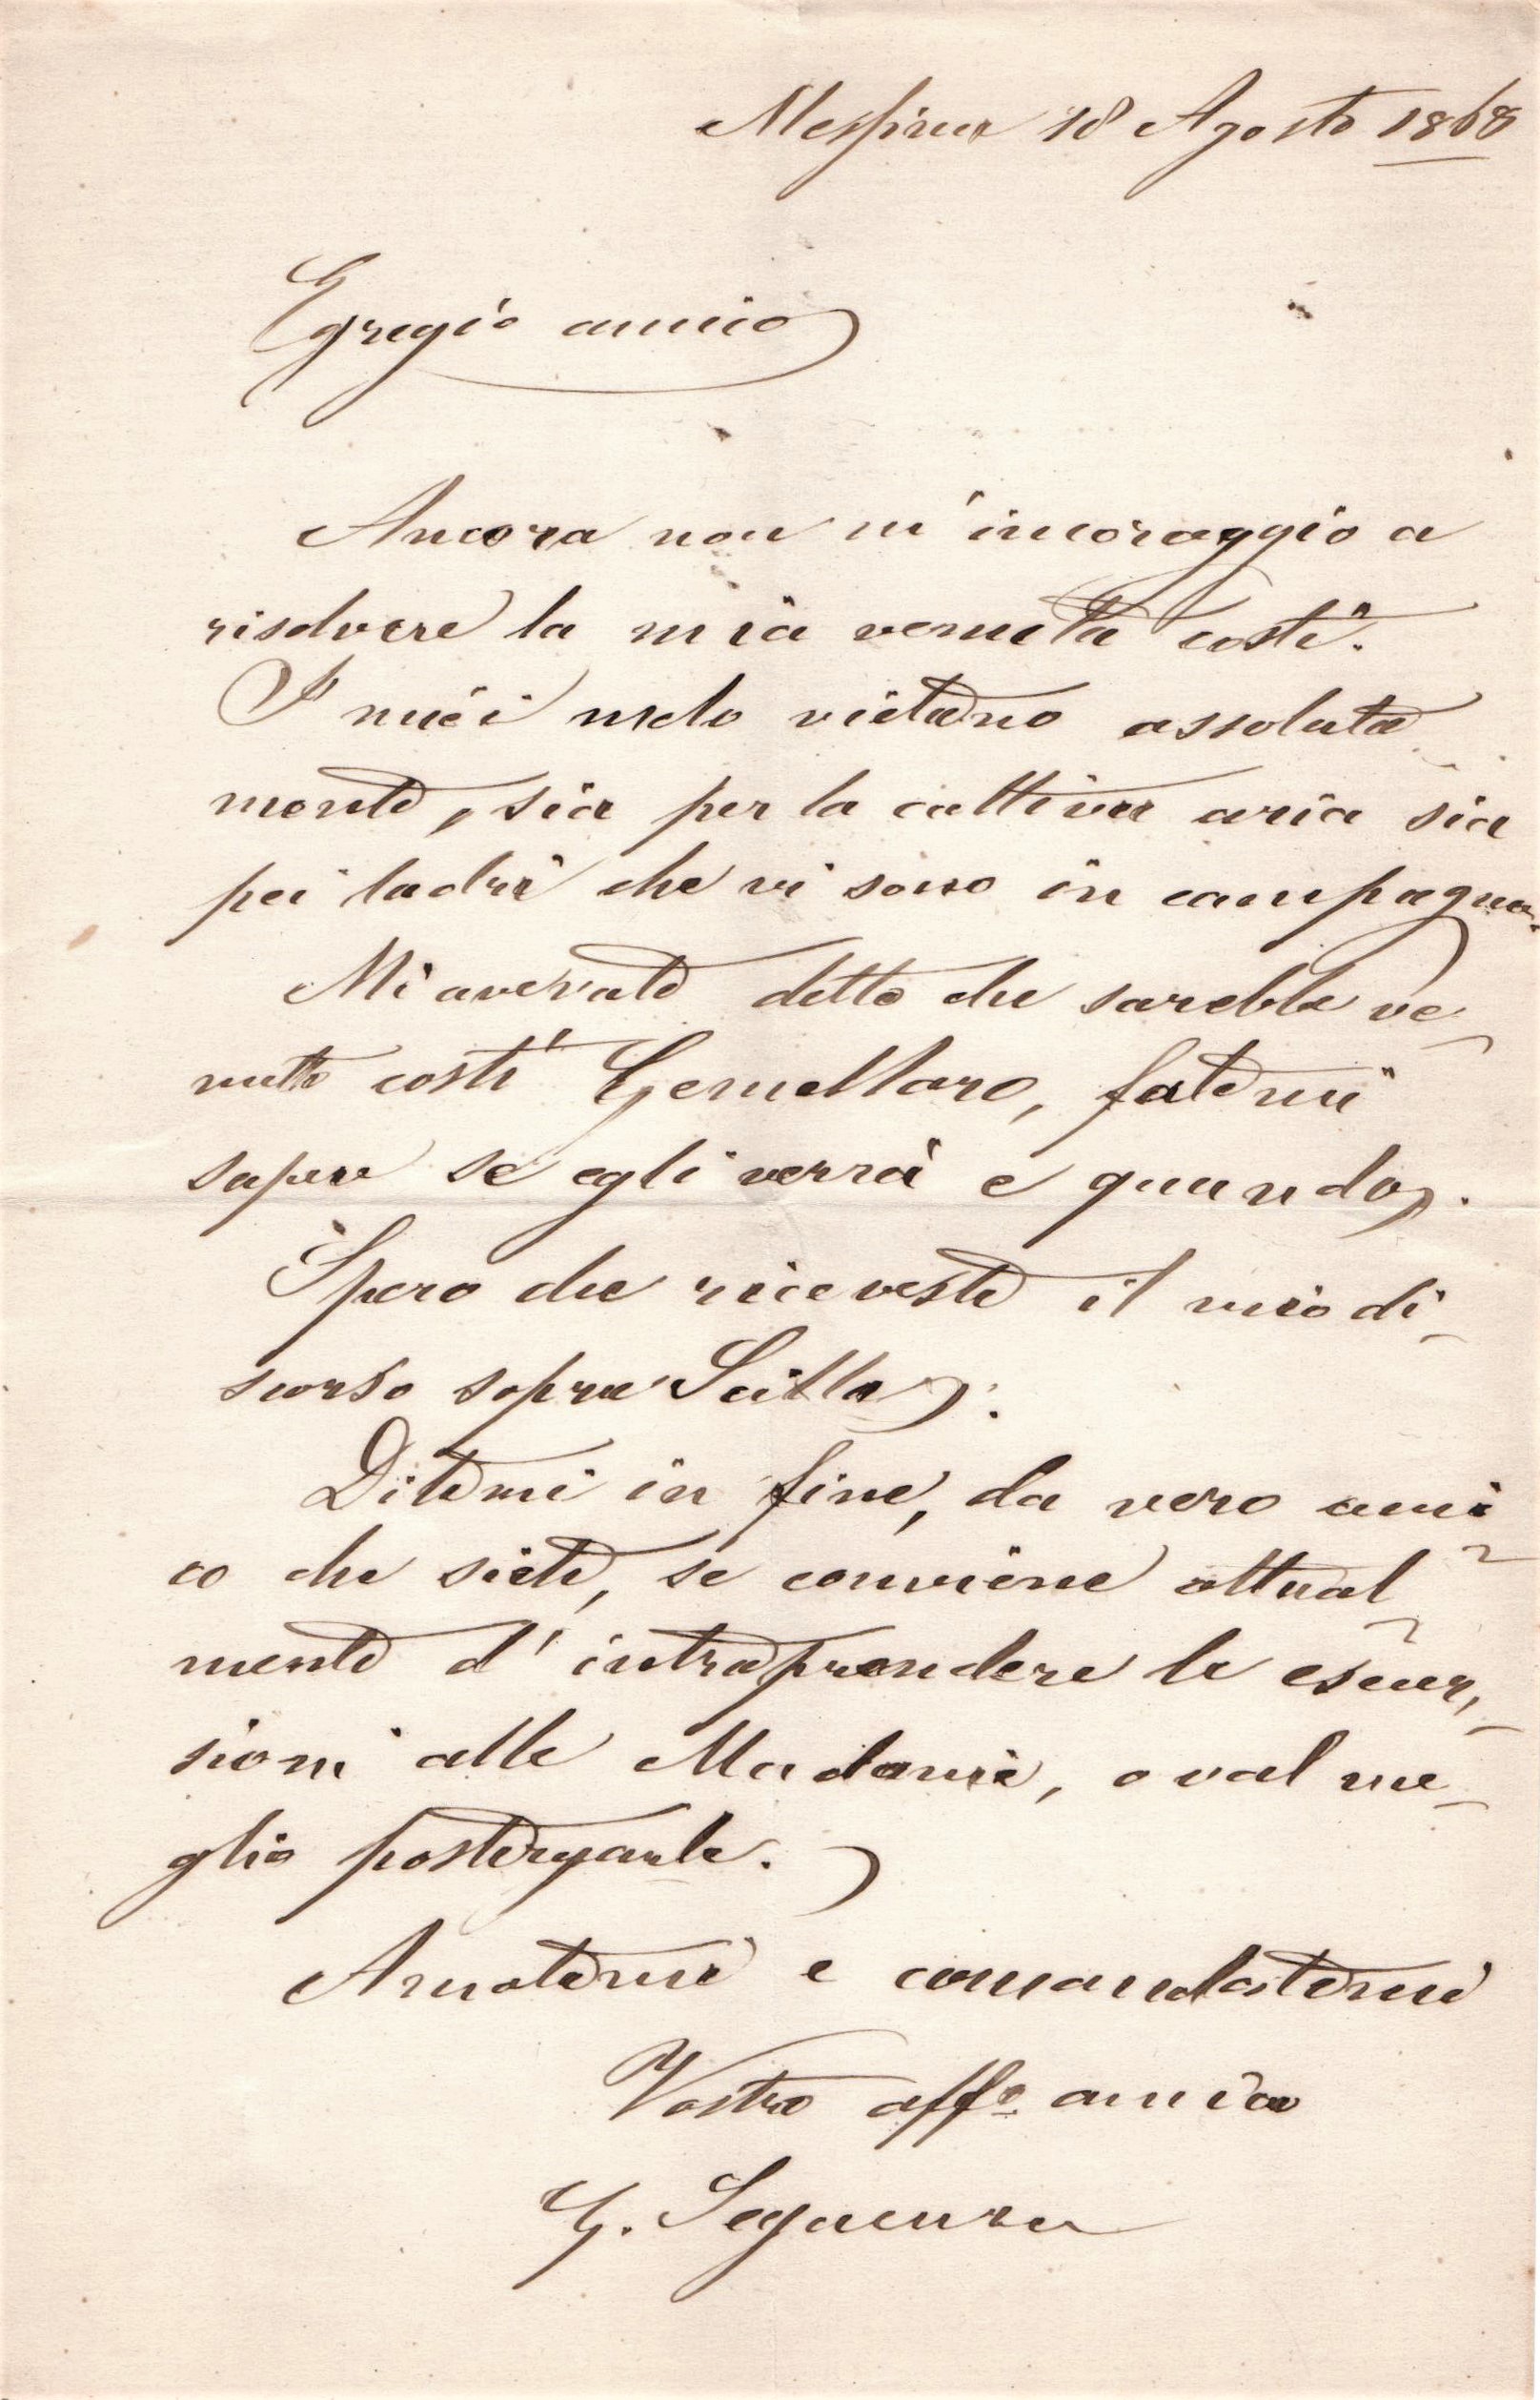 Messina 18 Agosto 1868
Egregio amico
Ancora non m'incoraggio a
risolvere la mia venuta costì.
I miei melo vietano assoluta
mente, sia per la cattiva aria sia
pei ladri che vi sono in campagna.
Mi avevate detto che sarebbe ve-
nuto costì Gemellaro, fatemi
sapere se egli verrà e quando.
Spero che riceveste il mio di-
scorso sopra Scilla.
Ditemi in fine, da vero ami
co che siete, se conviene attual-
mente d'intraprendere le escur-
sioni alle Madonie, o val me-
glio postergarle.
Amatemi e comandatemi
Vostro affo amico
G. Seguenza